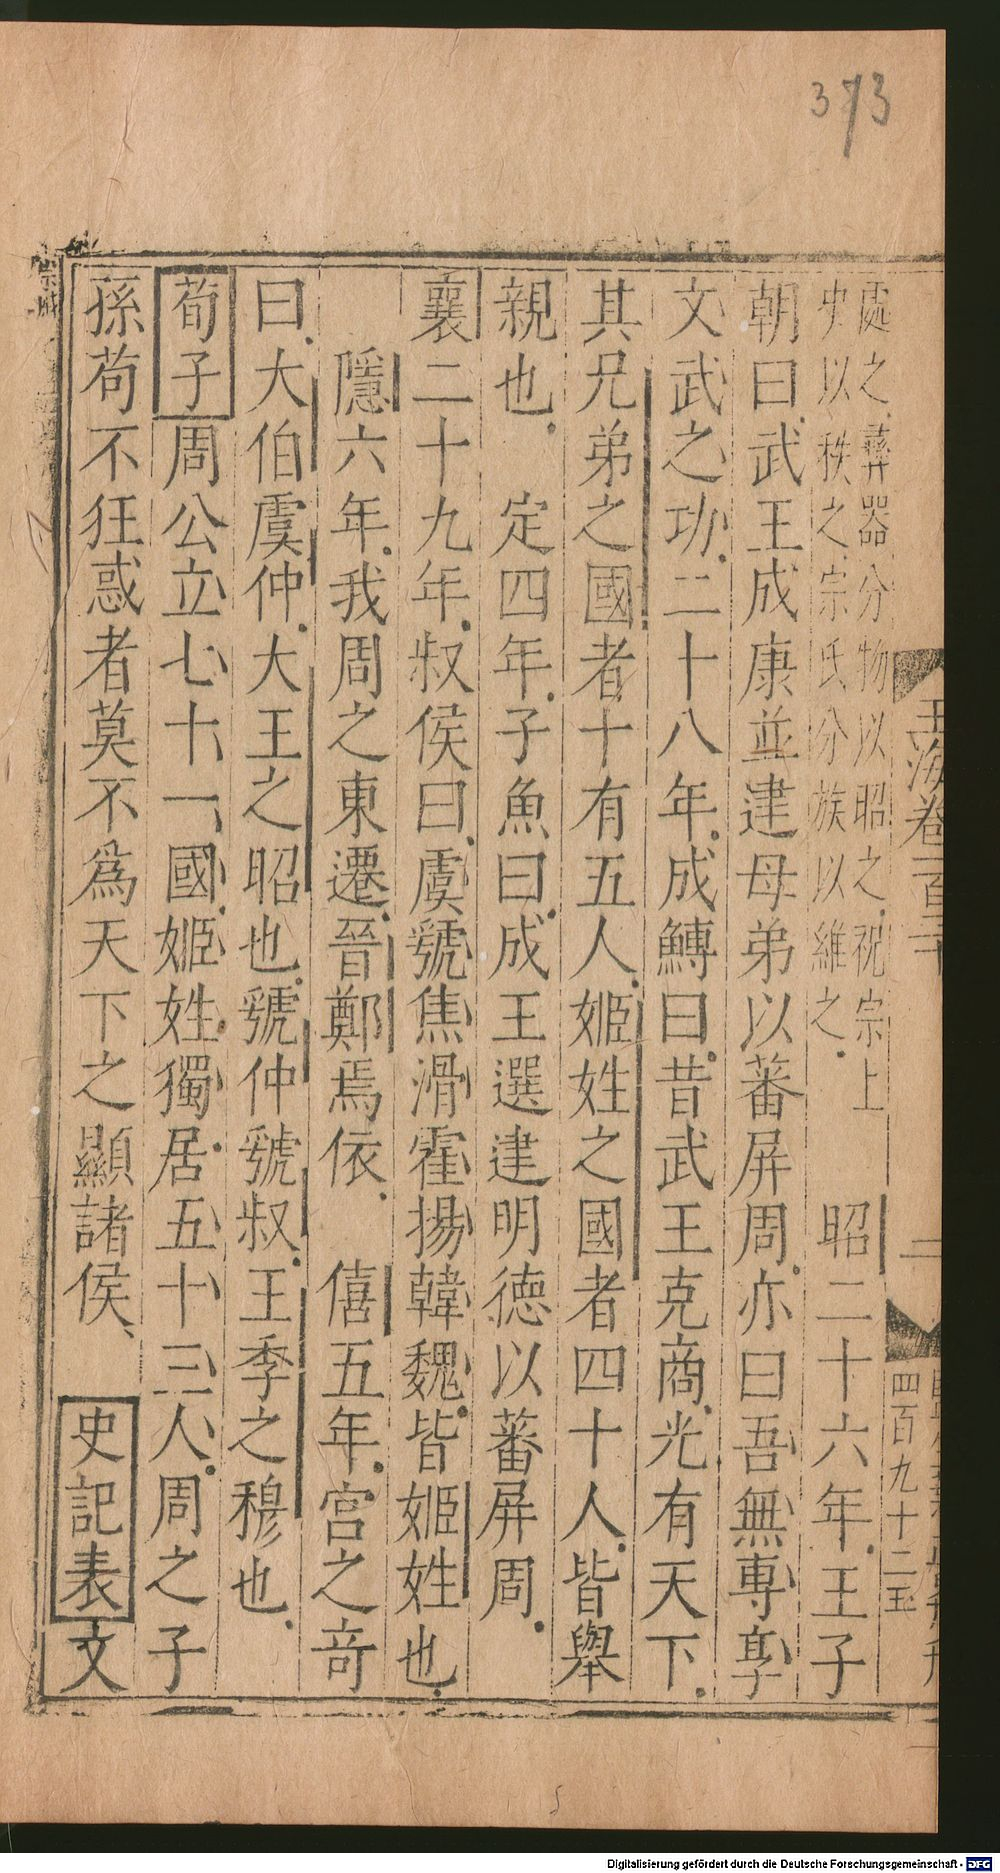 373
處之彝器分物以昭之祝宗上
史以秩之宗氏分族以維之
昭二十六年王子
朝曰武王成康並建母弟以蕃屏周亦曰吾無專享
文武之功二十八年成鱄曰昔武王克商光有天下
其兄弟之國者十有五人姬姓之國者四十人皆舉
親也　定四年子魚曰成王選建明德以蕃屏周
襄二十九年叔侯曰虞虢焦滑霍揚韓魏皆姬姓也
隱六年我周之東遷晉鄭焉依　僖五年宮之奇
曰大伯虞仲大王之昭也虢仲虢叔王季之穆也
荀子周公立七十一國姬姓獨居五十三人周之子
孫苟不狂惑者莫不為天下之顯諸侯　史記表文
玉海卷一百三十
二
四百九十二玉
宗
Digitalisierung gefördert durch die Deutsche Forschungsgemeinschaft - DFG